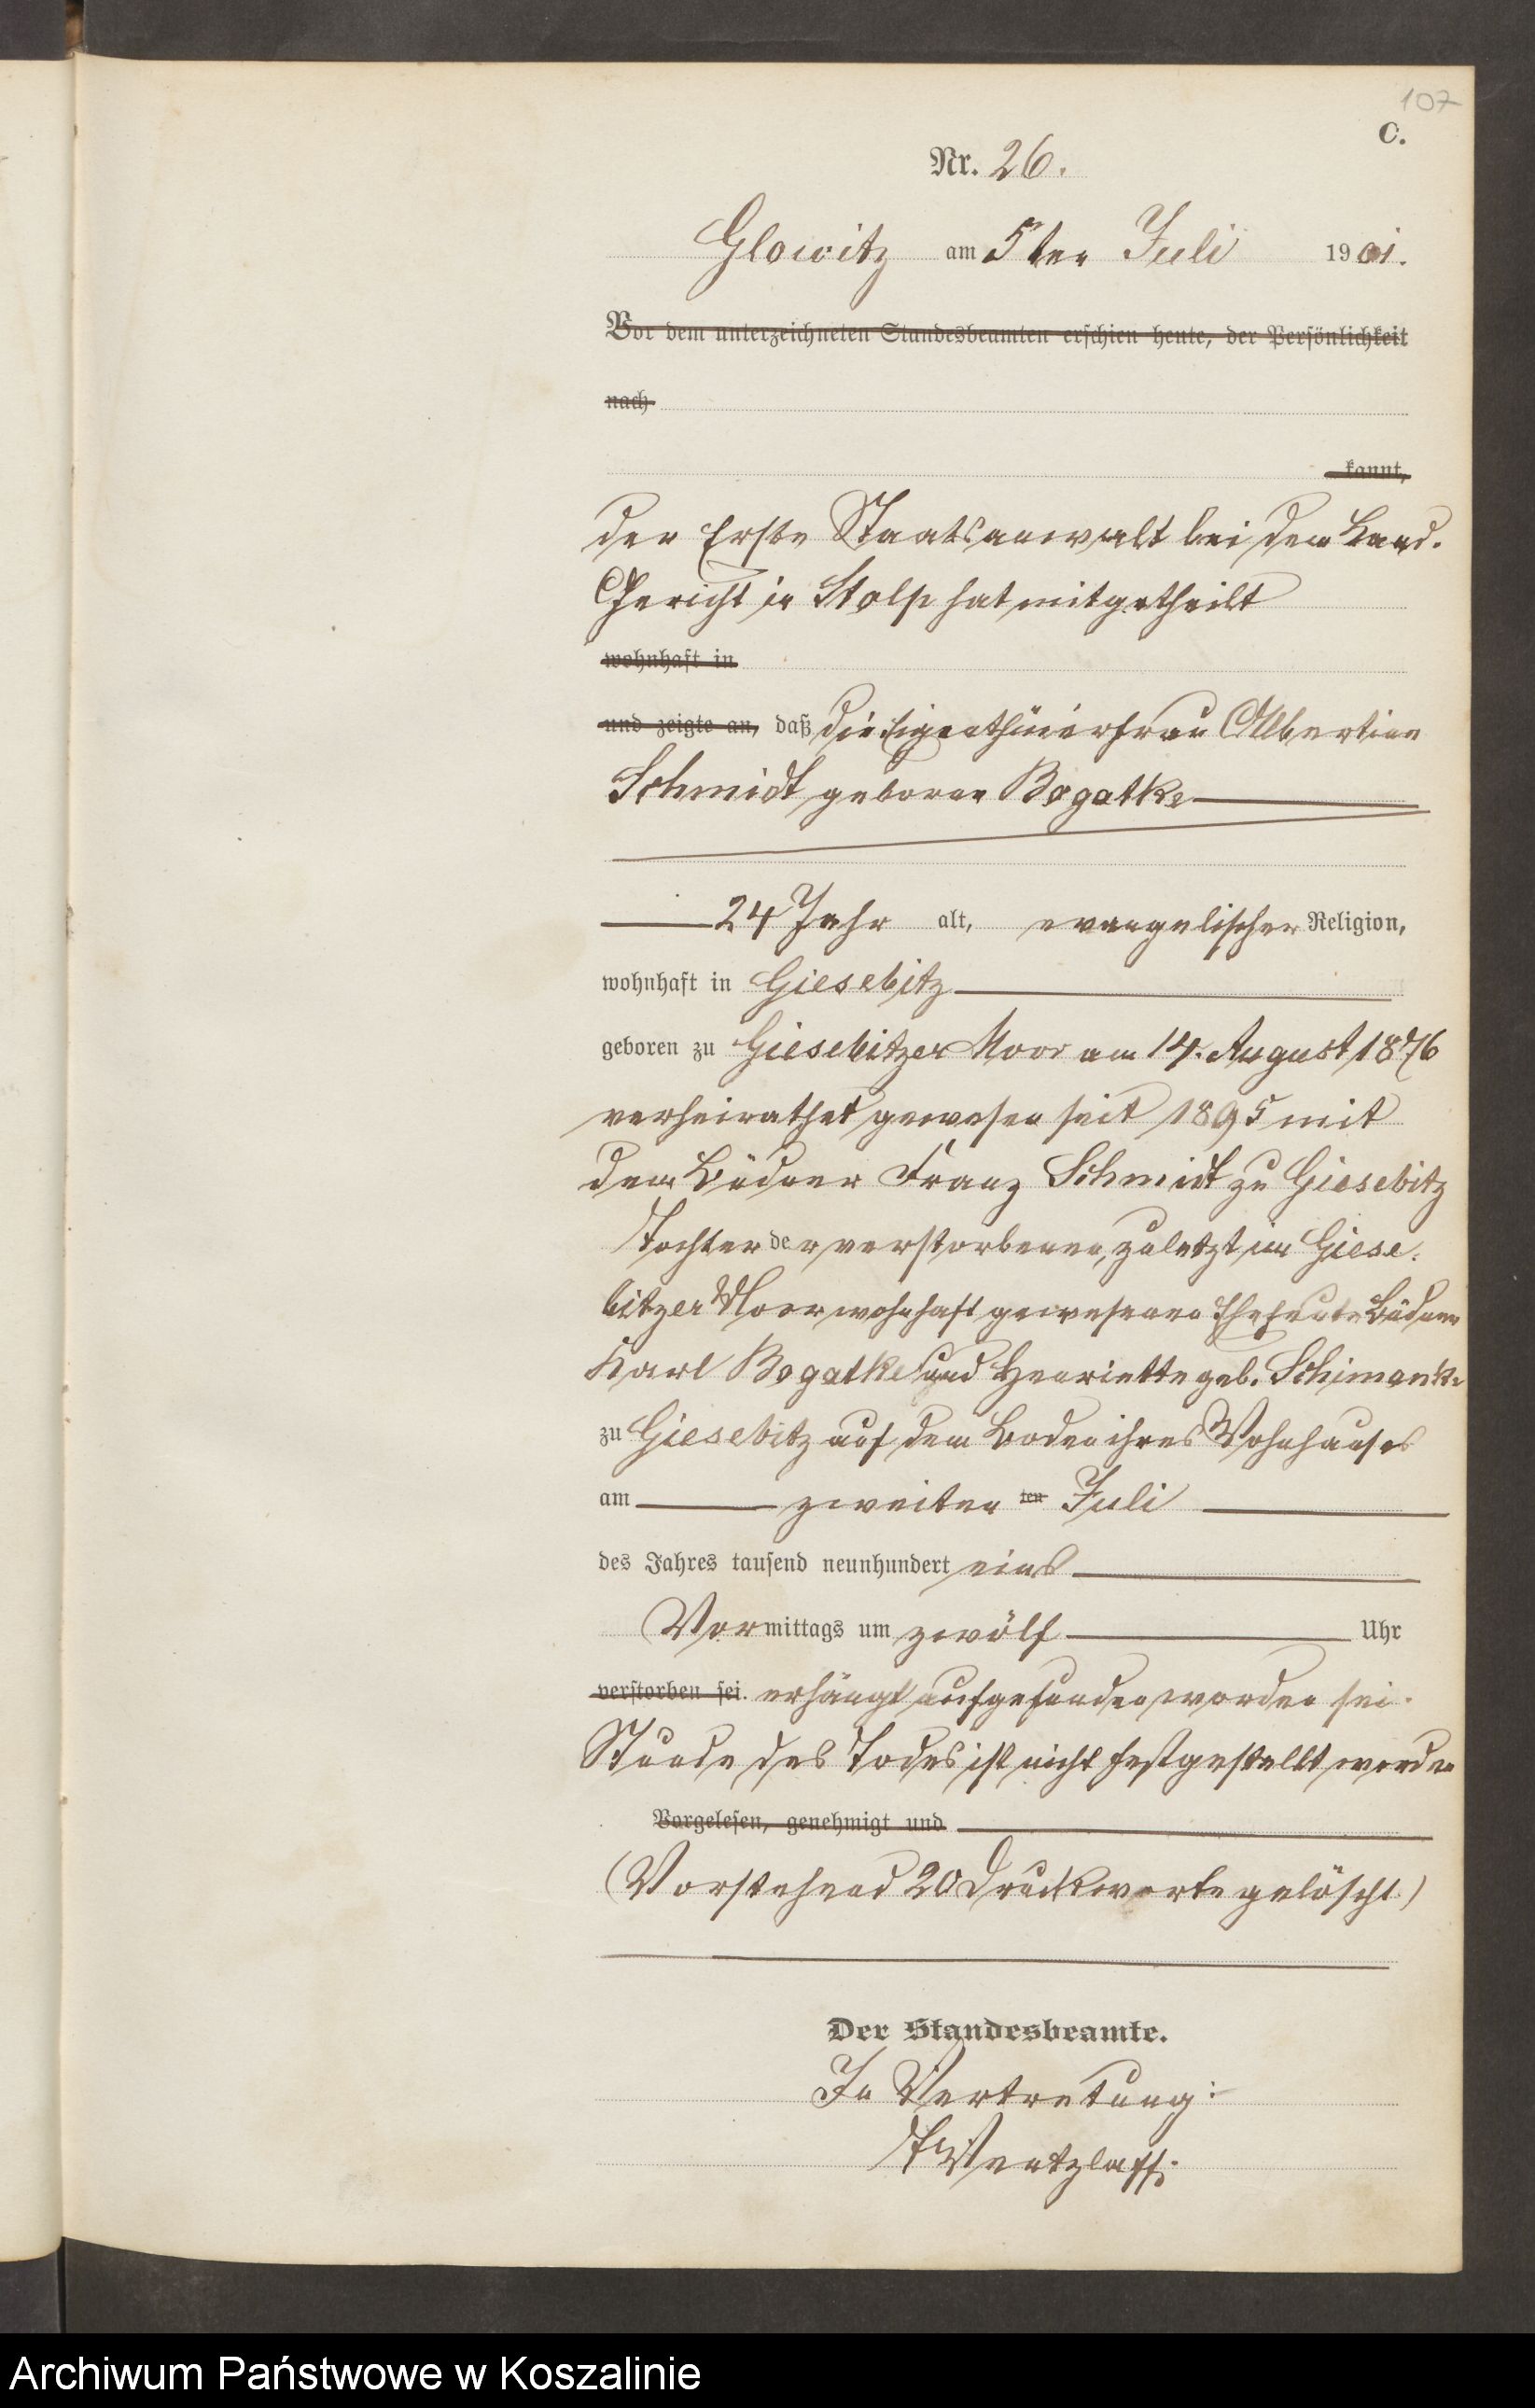 107
C.
Nr. 26.
Glowitz am 5ten Juli 1901.
Vor dem unterzeichneten Standesbeamten erschien heute, der Persönlichkeit
nach
kannt,
der Erste Staatsanwalt bei dem Land-
Gericht in Stolp hat mitgetheilt
wohnhaft in
und zeigte an, daß die Eigenthümerfrau Albertine
Schmidt geborne Bogatke
24 Jahr alt, evangelischer Religion,
wohnhaft in Giesebitz
geboren zu Giesebitzer Moor am 14. August 1876
verheirathet gewesen seit 1895 mit
dem Büdner Franz Schmidt zu Giesebitz
Tochter der verstorbenen, zuletzt im Giese-
bitzer Moor wohnhaft gewesenen Eheleute Büdner
Karl Bogatke und Henriette geb. Schimanke
zu Giesebitz auf dem Boden ihres Wohnhauses
am zweiten ten Juli
des Jahres tausend neunhundert eins
Vormittags um zwölf Uhr
verstorben sei. erhängt aufgefunden worden sei.
Stunde des Todes ist nicht festgestellt worden
Vorgelesen, genehmigt und
(Vorstehend 20 Druckworte gelöscht)
Der Standesbeamte.
In Vertretung:
Wentzlaff.
Archiwum Państwowe w Koszalinie